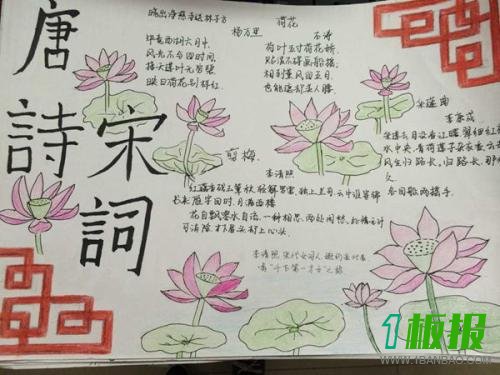 唐詩
宋詞
晓出净慈寺送林子方
杨万里
毕竟西湖六月中
风光不与四时同
接天莲叶无穷碧
映日荷花别样红
荷花
石涛
荷叶五寸荷花娇
贴波不碍画船摇
相到薰风四五月
也能遮却美人腰
采莲曲
水中央
风生归路长，归路长
久
各回歌两摇手
剪梅
李清照
红藕香残玉簟秋，轻解罗裳，独上兰舟，云中谁寄锦
书来雁字回时，月满西楼
花自飘零水自流，一种相思，两处闲愁，此情无计
可消除，才下眉头却上心头
李清照
1板报
WWW.1BANBAO.COM